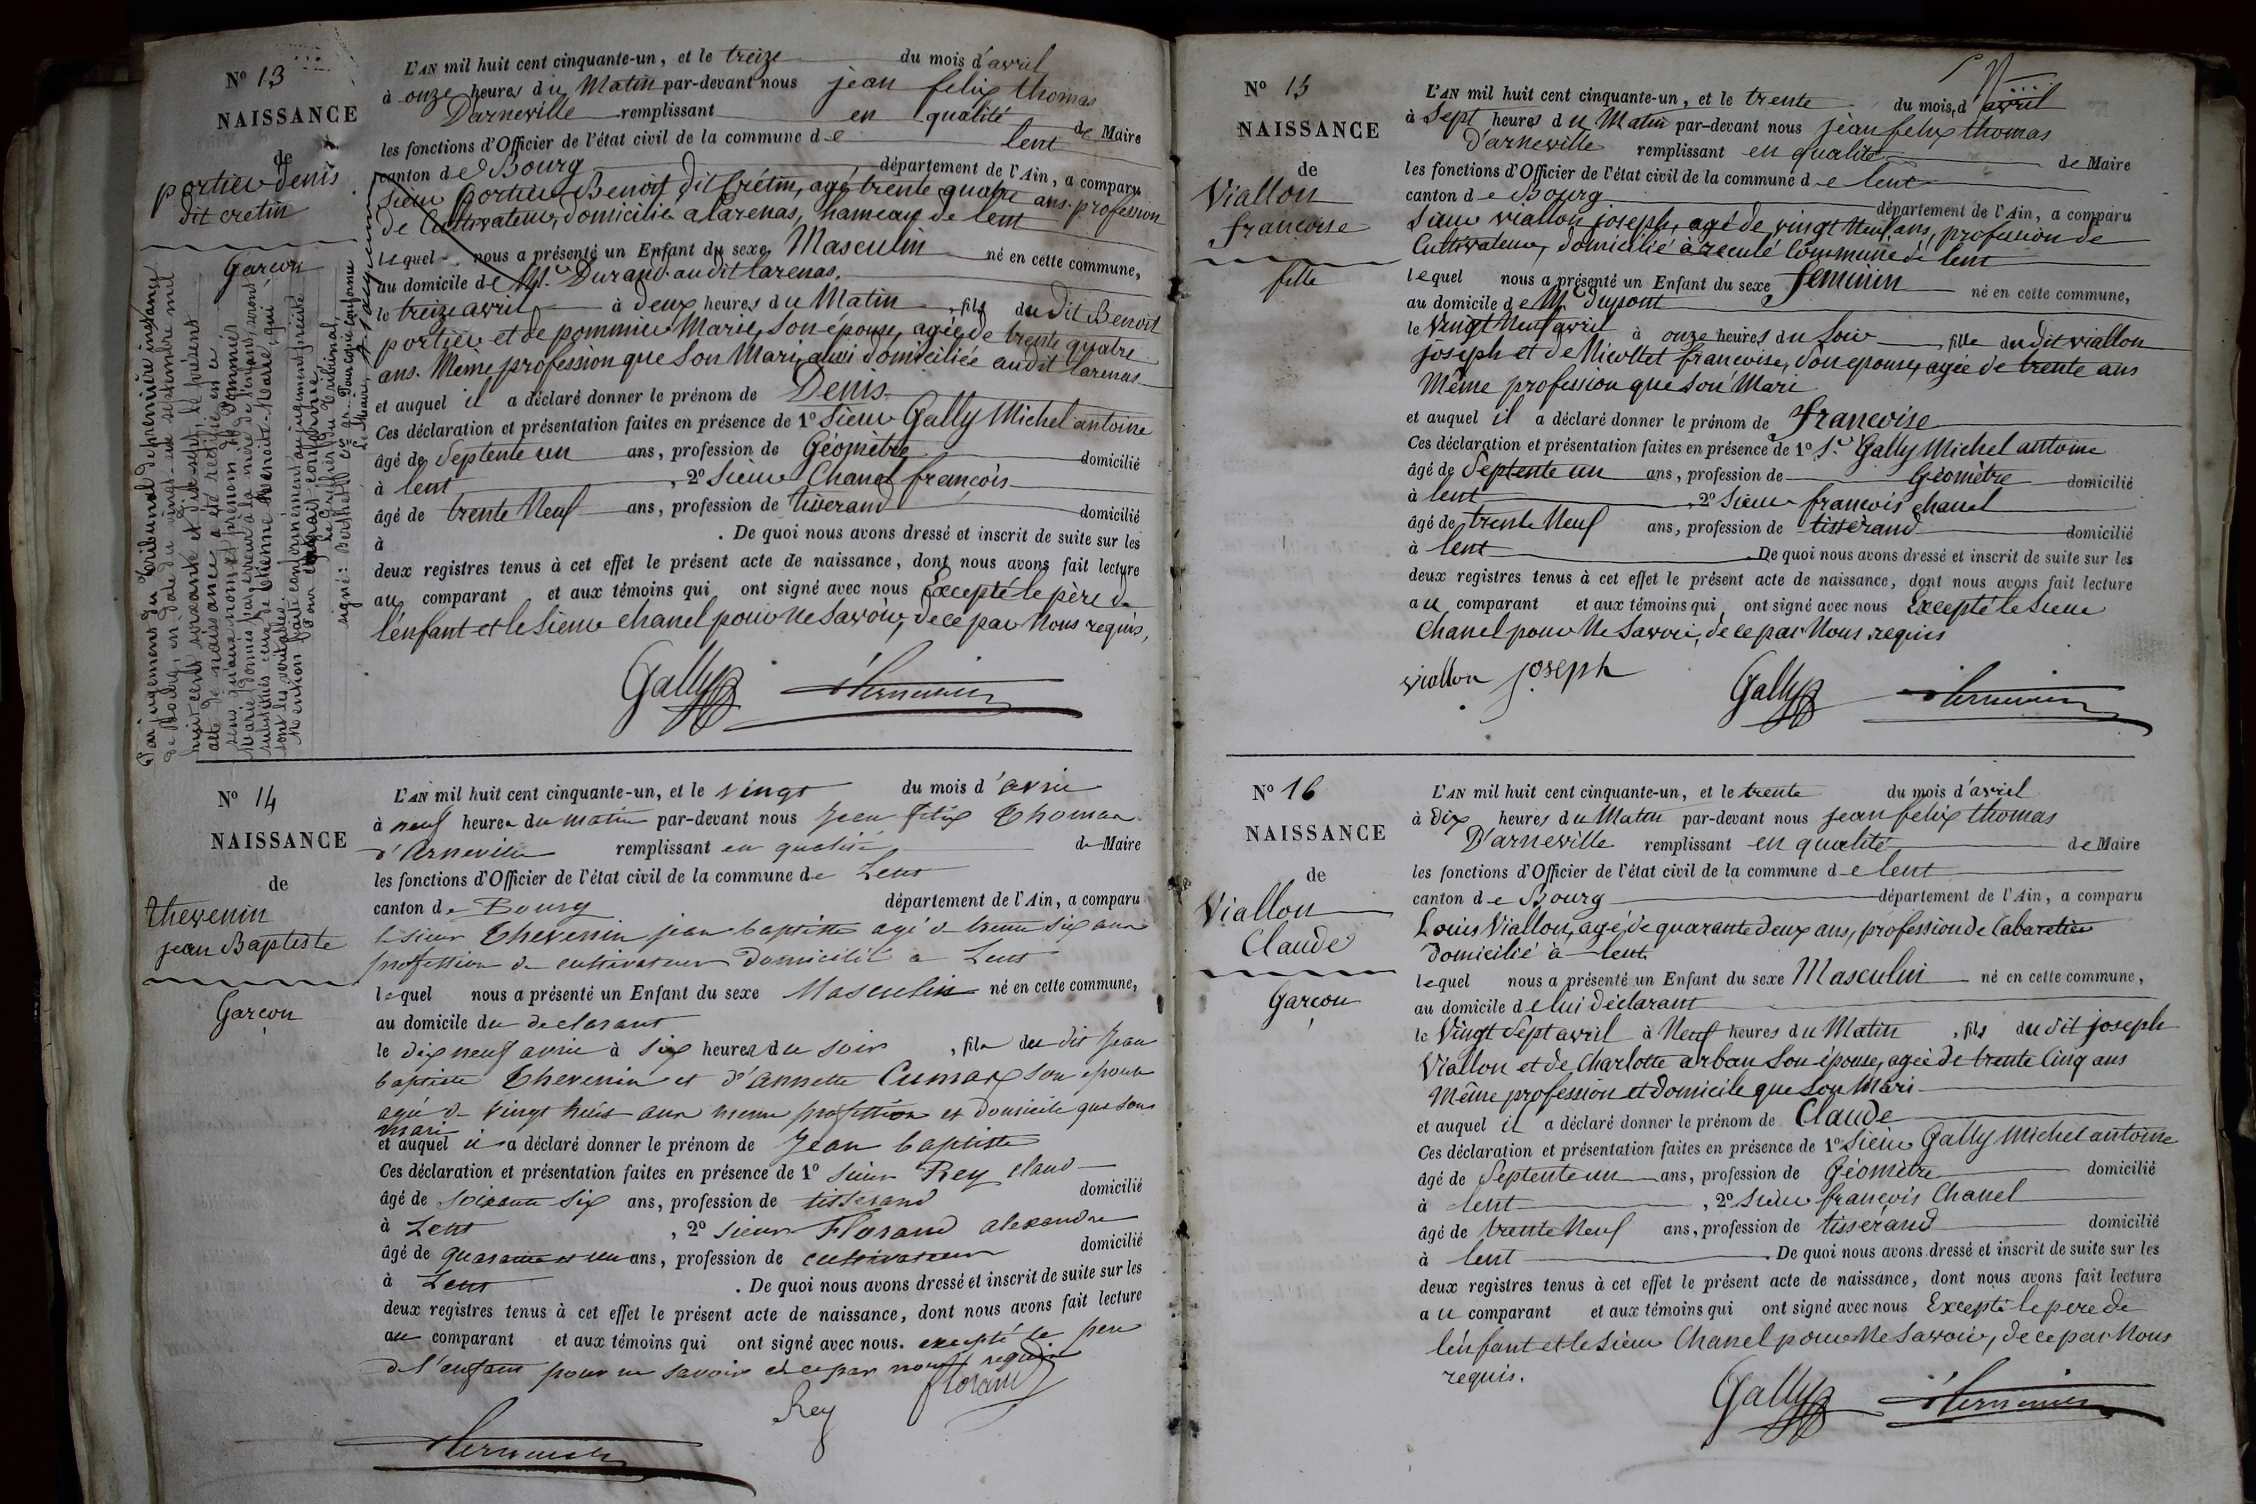 N° 13
NAISSANCE
de
portier denis
dit cretin
Garçon
Par jugement du Tribunal de première instance
de Bourg, en date du vingt-un septembre mil
huit cent soixante et dix-neuf, le présent
acte de naissance a été rectifié en ce
sens qu'aux nom et prénom de Pommier
Marie donnés par erreur à la mère de l'enfant, seront
substitués ceux de Chenne Benoite-Marie, qui
sont les véritables.
Mention faite conformément au jugement précité
Pour extrait conforme
Le Greffier du Tribunal,
signé: Pour copie conforme
Le Maire,
L'AN mil huit cent cinquante-un, et le treize du mois d'avril
à onze heures du Matin par-devant nous jean felix thomas
D'arneville remplissant en qualité de Maire
les fonctions d'Officier de l'état civil de la commune de lent
canton de Bourg, département de l'Ain, a comparu
Sieur portier Benoit dit Crétin, agé trente quatre ans, profession
de Cultivateur, domicilié a larenas, hameau de lent
lequel nous a présenté un Enfant du sexe Masculin né en cette commune,
au domicile de Mr. Durand audit larenas.
le treize avril à deux heures du Matin, fils du dit Benoit
portier et de pommier Marie, son épouse, agée de trente quatre
ans. Même profession que son Mari, a lui domiciliée audit larenas
et auquel il a déclaré donner le prénom de Denis.
Ces déclaration et présentation faites en présence de 1° Sieur Gally Michel antoine
âgé de Septente un ans, profession de Géomètre domicilié
à lent, 2° Sieur Chanel françois
âgé de trente Neuf ans, profession de tisserand domicilié
à . De quoi nous avons dressé et inscrit de suite sur les
deux registres tenus à cet effet le présent acte de naissance, dont nous avons fait lecture
au comparant et aux témoins qui ont signé avec nous Excepté le père de
l'enfant et le Sieur chanel pour Ne Savoir, de ce par Nous requis,
Gally
N° 14
NAISSANCE
de
thevenin
jean Baptiste
Garçon
L'AN mil huit cent cinquante-un, et le vingt du mois d'avril
à neuf heures du matin par-devant nous Jean Felix Thomas
d'Arneville remplissant en qualité de Maire
les fonctions d'Officier de l'état civil de la commune de Lent
canton de Bourg département de l'Ain, a comparu
le sieur Thevenin jean baptiste agé de trente six ans
profession de cultivateur domicilié a Lent
lequel nous a présenté un Enfant du sexe Masculin né en cette commune,
au domicile du declarant
le dix neuf avril à six heures du soir, fils du dit Jean
baptiste Thevenin et d'annette Cumax son epouse
agée de vingt huit ans meme profession et domicile que son
mari
et auquel il a déclaré donner le prénom de Jean baptiste
Ces déclaration et présentation faites en présence de 1° sieur Rey claud
âgé de soixante six ans, profession de tisserand domicilié
à Lent, 2° sieur Florand alexandre
âgé de quarante et un ans, profession de cultivateur domicilié
à Lent . De quoi nous avons dressé et inscrit de suite sur les
deux registres tenus à cet effet le présent acte de naissance, dont nous avons fait lecture
au comparant et aux témoins qui ont signé avec nous. excepté le pere
de l'enfant pour ne savoir de ce par nous requis
Rey Florand
N° 15
NAISSANCE
de
Viallon
françoise
fille
L'AN mil huit cent cinquante-un, et le trente du mois d'avril
à Sept heures du Matin par-devant nous jean felix thomas
D'arneville remplissant en qualité de Maire
les fonctions d'Officier de l'état civil de la commune de lent
canton de Bourg département de l'Ain, a comparu
Sieur viallon joseph, agé de vingt Neuf ans, profession de
Cultivateur, domicilié à reculé Commune de lent
lequel nous a présenté un Enfant du sexe feminin né en cette commune,
au domicile de Mr dupont
le Vingt Neuf avril à onze heures du Soir, fille du dit viallon
joseph et de Nicollet francoise, son epouse, agée de trente ans
Même profession que son Mari
et auquel il a déclaré donner le prénom de francoise
Ces déclaration et présentation faites en présence de 1° Sr. Gally Michel antoine
âgé de Septente un ans, profession de Géomètre domicilié
à lent, 2° Sieur francois chanel
âgé de trente Neuf ans, profession de tisserand domicilié
à lent . De quoi nous avons dressé et inscrit de suite sur les
deux registres tenus à cet effet le présent acte de naissance, dont nous avons fait lecture
au comparant et aux témoins qui ont signé avec nous Excepté le Sieur
Chanel pour Ne Savoir, de ce par Nous requis
viallon joseph Gally
N° 16
NAISSANCE
de
Viallon
Claude
Garçon
L'AN mil huit cent cinquante-un, et le trente du mois d'avril
à Dix heures du Matin par-devant nous jean felix thomas
D'arneville remplissant en qualité de Maire
les fonctions d'Officier de l'état civil de la commune de lent
canton de Bourg département de l'Ain, a comparu
Louis Viallon, agé, de quarante deux ans, profession de Cabaretier
Domicilié à lent
lequel nous a présenté un Enfant du sexe Masculin né en cette commune,
au domicile de lui déclarant
le Vingt Sept avril à Neuf heures du Matin, fils du dit joseph
Viallon et de Charlotte arban son épouse, agée de trente Cinq ans
Même profession et domicile que son Mari
et auquel il a déclaré donner le prénom de Claude
Ces déclaration et présentation faites en présence de 1° Sieur Gally Michel antoine
âgé de Septente un ans, profession de Géomètre domicilié
à lent, 2° Sieur francois Chanel
âgé de trente Neuf ans, profession de tisserand domicilié
à lent . De quoi nous avons dressé et inscrit de suite sur les
deux registres tenus à cet effet le présent acte de naissance, dont nous avons fait lecture
au comparant et aux témoins qui ont signé avec nous Excepté le pere de
l'enfant et le Sieur Chanel pour Ne Savoir, de ce par Nous
requis.
Gally